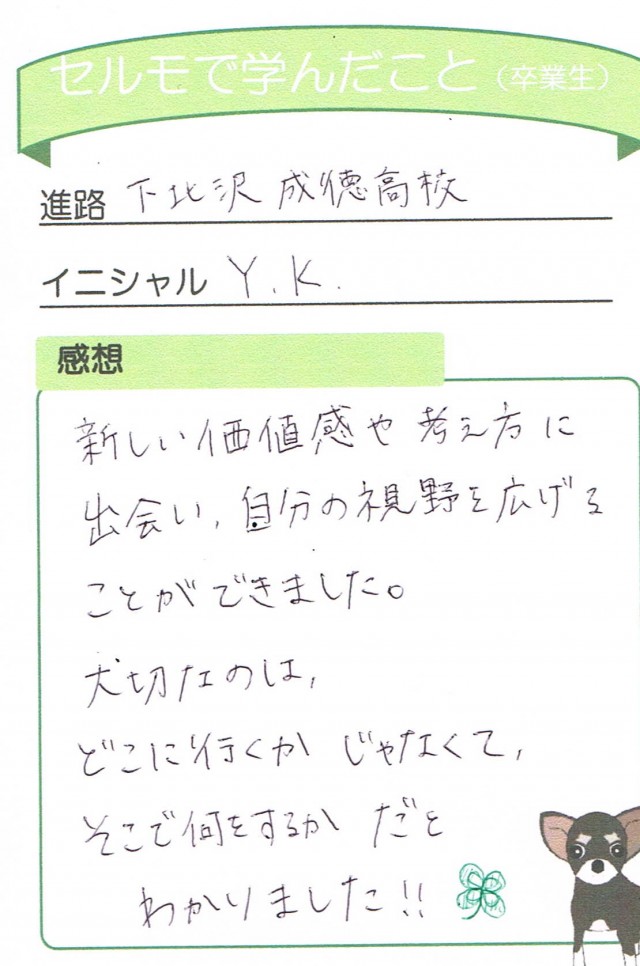 セルモで学んだこと（卒業生）
進路 下北沢成徳高校
イニシャル Y.K.
感想
新しい価値感や考え方に
出会い,自分の視野を広げる
ことができました。
大切なのは,
どこに行くか じゃなくて,
そこで何をするか だと
わかりました!!